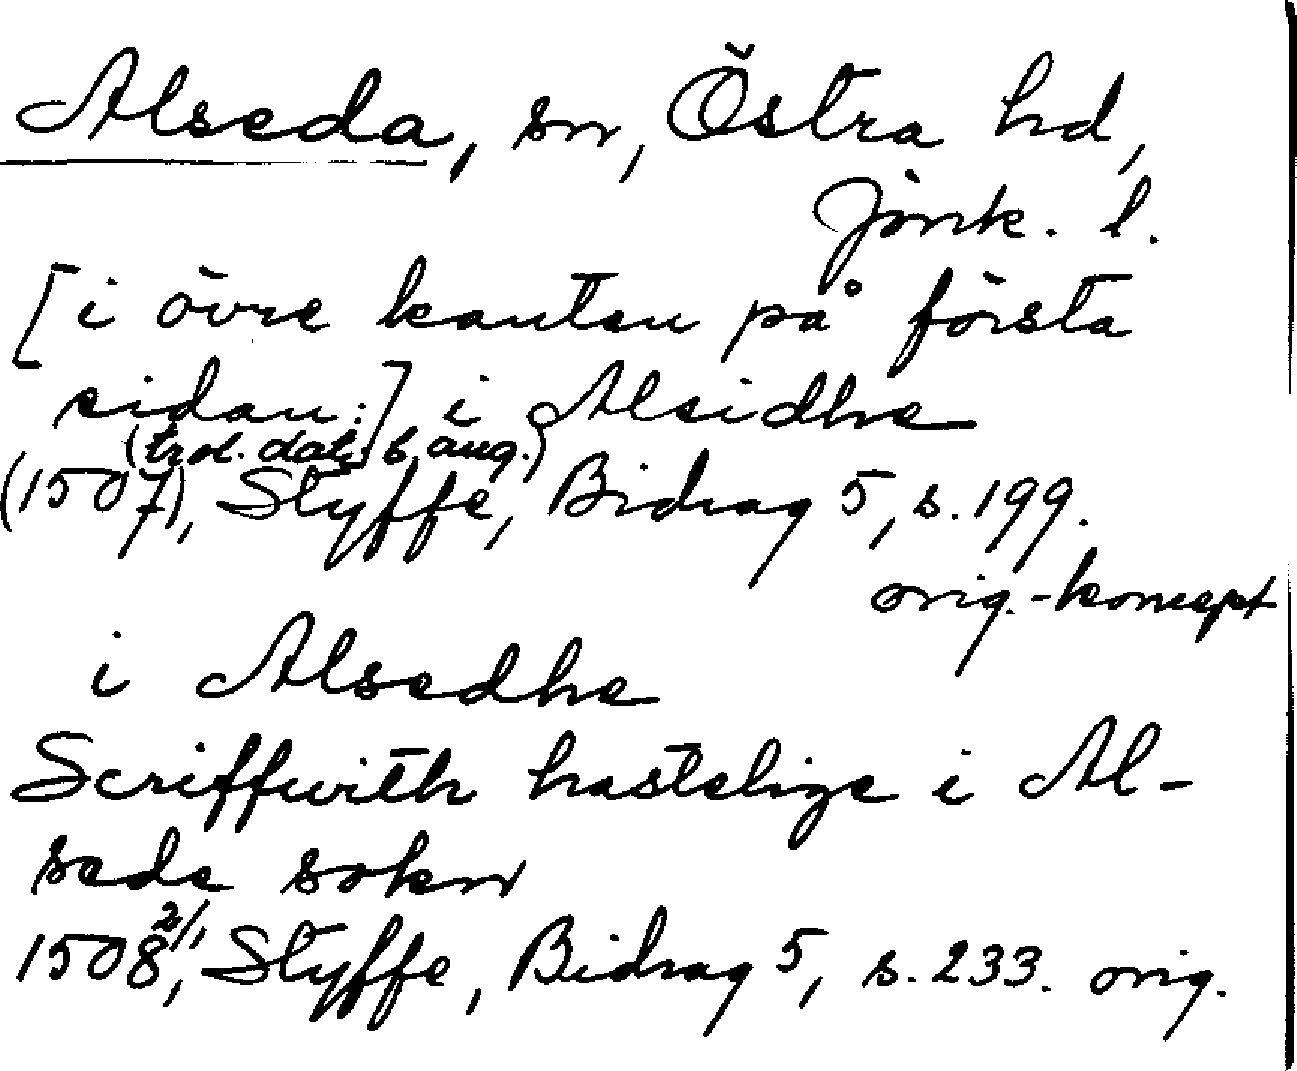 Alseda, sn, Östra hd,
Jönk. l.
[i övre kanten på första
sidan:] i Alsidhe
(trol. dat. 6 aug.)
(1507), Styffe, Bidrag 5, s. 199.
orig.-koncept
i Alsedhe
Scriffwith hastelige i Al-
sede sokn
1508 2/1, Styffe, Bidrag 5, s. 233. orig.